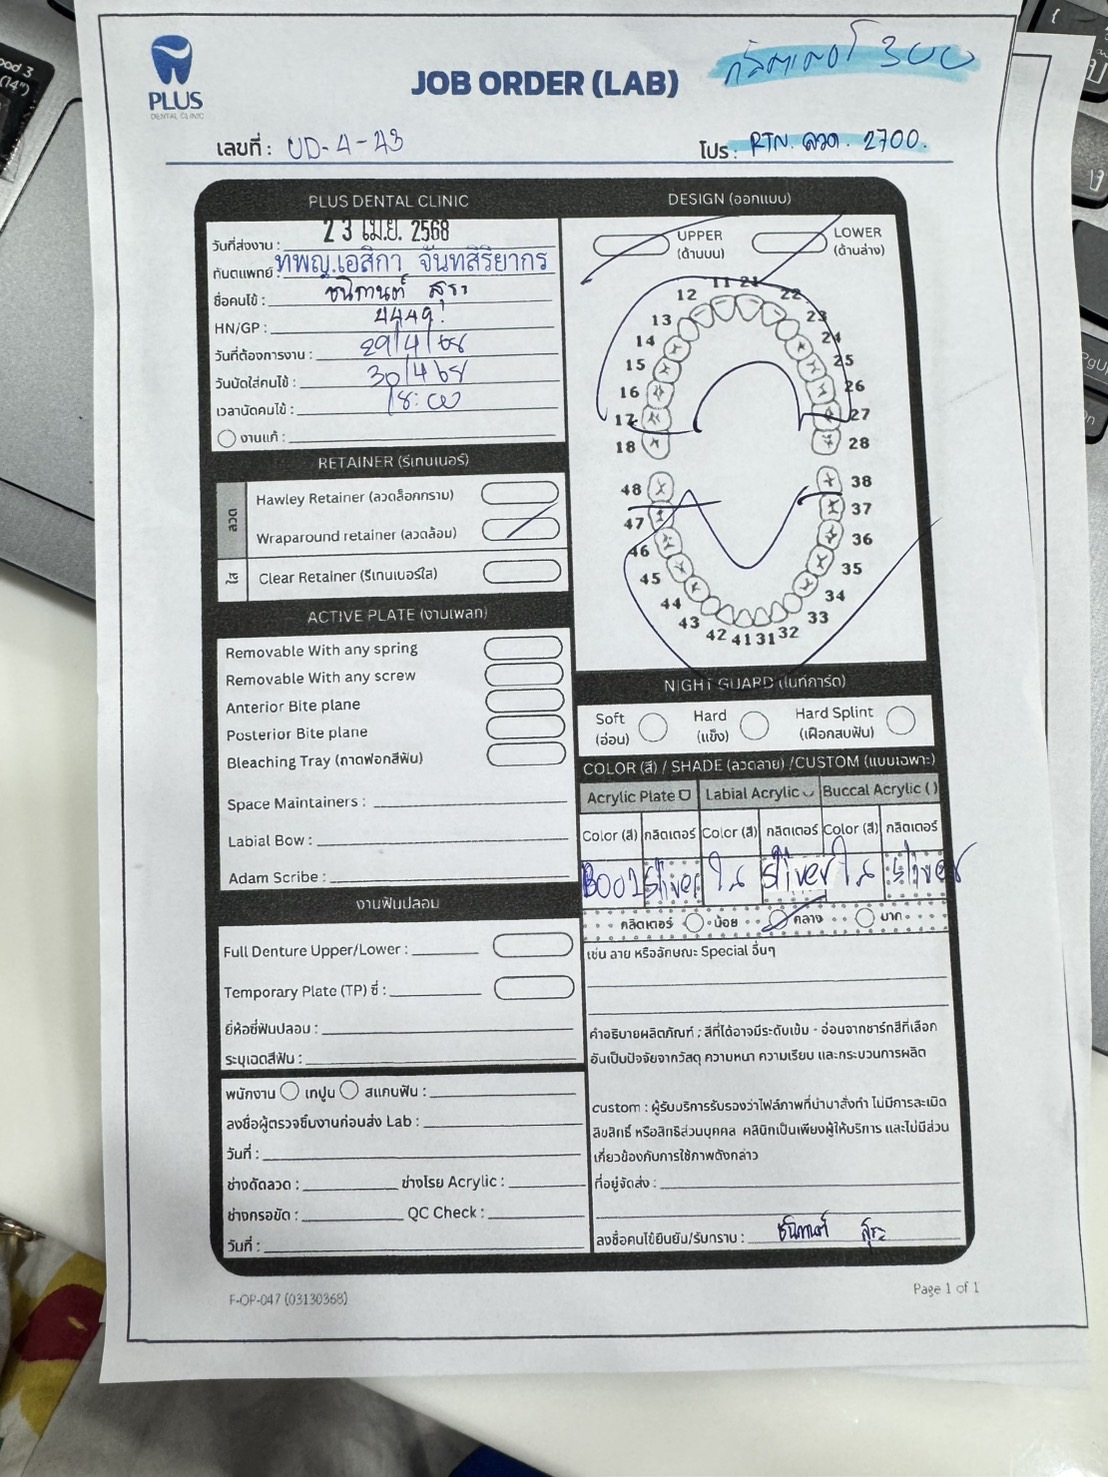 PLUS
DENTAL CLINIC
JOB ORDER (LAB)
กลิตเตอร์ 300
เลขที่ : UD-4-43
โปร : RTN. ลวด. 2700.
PLUS DENTAL CLINIC
วันที่ส่งงาน : 23 เม.ย. 2568
ทันตแพทย์ : ทพญ.เอสิกา จันทสิริยากร
ชื่อคนไข้ : ชนิกานต์ สุระ
HN/GP : 4449
วันที่ต้องการงาน : 29/4/68
วันนัดใส่คนไข้ : 30/4/68
เวลานัดคนไข้ : 18:00
งานแก้ :
RETAINER (รีเทนเนอร์)
ลวด
Hawley Retainer (ลวดล็อกกราม)
Wraparound retainer (ลวดล้อม)
ใส
Clear Retainer (รีเทนเนอร์ใส)
ACTIVE PLATE (งานเพลท)
Removable With any spring
Removable With any screw
Anterior Bite plane
Posterior Bite plane
Bleaching Tray (ถาดฟอกสีฟัน)
Space Maintainers :
Labial Bow :
Adam Scribe :
งานฟันปลอม
Full Denture Upper/Lower :
Temporary Plate (TP) ซี่ :
ยี่ห้อซี่ฟันปลอม :
ระบุเฉดสีฟัน :
พนักงาน เทปูน สแกนฟัน :
ลงชื่อผู้ตรวจชิ้นงานก่อนส่ง Lab :
วันที่ :
ช่างดัดลวด : ช่างโรย Acrylic :
ช่างกรอขัด : QC Check :
วันที่ :
DESIGN (ออกแบบ)
UPPER
(ด้านบน)
LOWER
(ด้านล่าง)
11 21
12 22
13 23
14 24
15 25
16 26
17 27
18 28
48 38
47 37
46 36
45 35
44 34
43 33
42 41 31 32
NIGHT GUARD (ไนท์การ์ด)
Soft
(อ่อน)
Hard
(แข็ง)
Hard Splint
(เฝือกสบฟัน)
COLOR (สี) / SHADE (ลวดลาย) /CUSTOM (แบบเฉพาะ)
Acrylic Plate Labial Acrylic Buccal Acrylic ( )
Color (สี) กลิตเตอร์ Color (สี) กลิตเตอร์ Color (สี) กลิตเตอร์
B001 sliver ใส sliver ใส sliver
กลิตเตอร์ น้อย กลาง มาก
เช่น ลาย หรือลักษณะ Special อื่นๆ
คำอธิบายผลิตภัณฑ์ ; สีที่ได้อาจมีระดับเข้ม - อ่อนจากชาร์ทสีที่เลือก
อันเป็นปัจจัยจากวัสดุ ความหนา ความเรียบ และกระบวนการผลิต
custom : ผู้รับบริการรับรองว่าไฟล์ภาพที่นำมาสั่งทำ ไม่มีการละเมิด
ลิขสิทธิ์ หรือสิทธิส่วนบุคคล คลินิกเป็นเพียงผู้ให้บริการ และไม่มีส่วน
เกี่ยวข้องกับการใช้ภาพดังกล่าว
ที่อยู่จัดส่ง :
ลงชื่อคนไข้ยืนยัน/รับทราบ : ชนิกานต์ สุระ
F-OP-047 (03130368)
Page 1 of 1